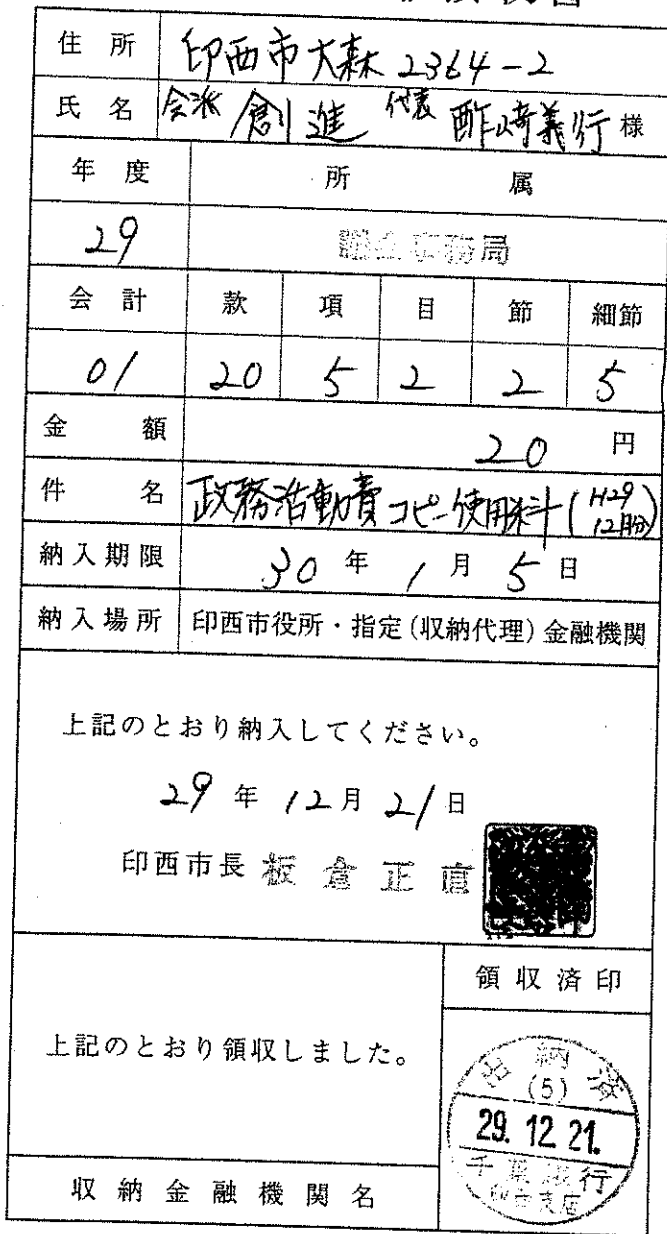 住所 印西市大森2364-2
氏名 会派 創進 代表 酢崎義行 様
年度 所属
29 議会事務局
会計 款 項 目 節 細節
01 20 5 2 2 5
金額 20 円
件名 政務活動費コピー使用料(H29 12月分)
納入期限 30年1月5日
納入場所 印西市役所・指定(収納代理)金融機関
上記のとおり納入してください。
29年12月21日
印西市長 板倉正直
領収済印
上記のとおり領収しました。
出納済
(5)
29.12.21.
千葉銀行
収納金融機関名